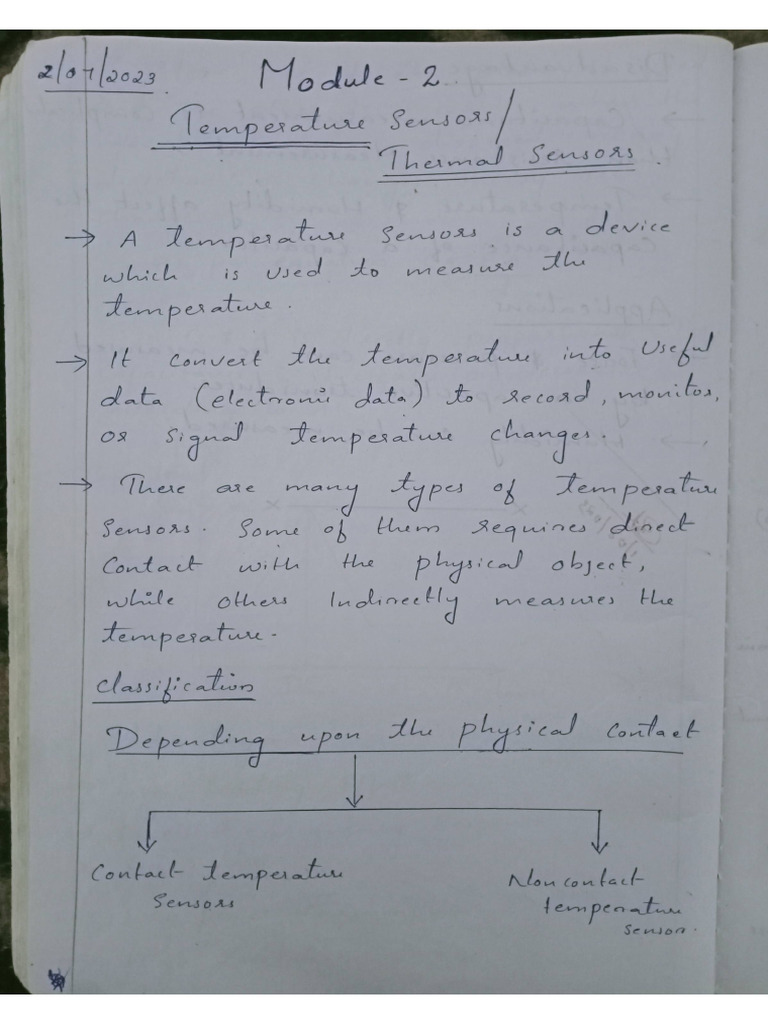 2/01/2023
Module - 2.
Temperature Sensors/
Thermal Sensors.
→ A temperature sensors is a device
which is used to measure the
temperature.
→ It convert the temperature into useful
data (electronic data) to record, monitor,
or signal temperature changes.
→ There are many types of temperature
sensors. Some of them requires direct
contact with the physical object,
while others Indirectly measures the
temperature.
Classification
Depending upon the physical contact
Contact temperature
Sensors
Non contact
temperature
sensor.